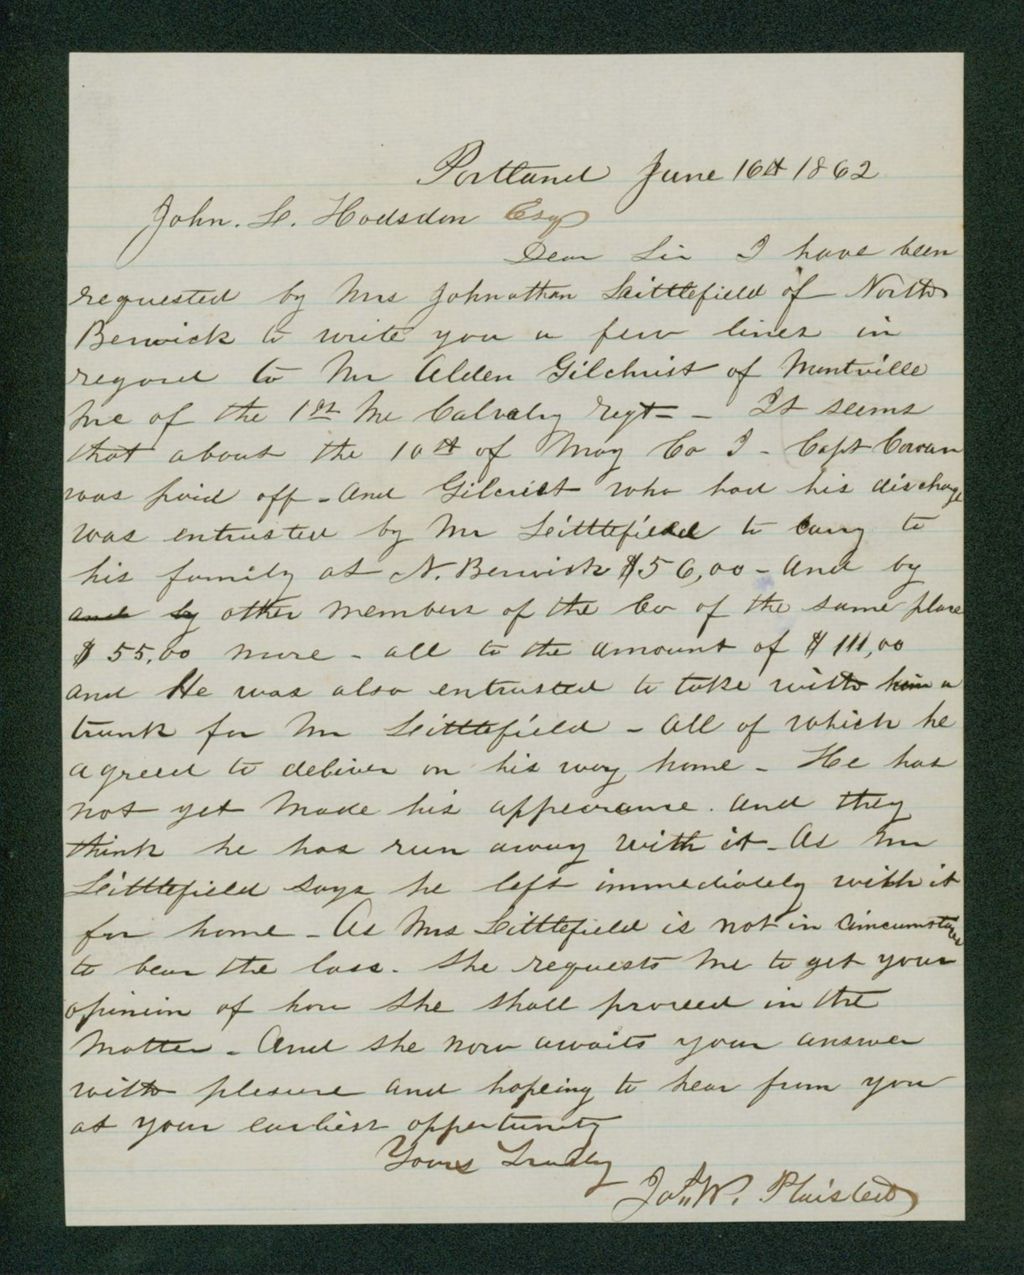 Portland June 16th 1862
John. L. Hodsdon Esq
Dear Sir I have been
requested by Mrs Johnathan Littlefield of North
Berwick to write you a few lines in
regard to Mr Alden Gilchrist of Montville
Me of the 1st Me Calvalry regt - It seems
that about the 10th of May Co I - Capt Cowan
was paid off - And Gilcrist who had his discharge
was entrusted by Mr Littlefield to carry to
his family at N. Berwick $56,00 - And by
and by other members of the Co of the same place
$55,00 more - all to the amount of $111,00
and He was also entrusted to take with him a
trunk for Mr Littlefield - All of which he
agreed to deliver on his way home - He has
not yet made his appearance. And they
think he has run away with it - As Mr
Littlefield says he left immediately with it
for home - As Mrs Littlefield is not in circumstances
to bear the loss. She requests me to get your
opinion of how She shall proceed in the
Matter - And she now awaits your answer
with plesure and hopeing to hear from you
at your earliest oppertunity
Yours Truly
W. Plaisted